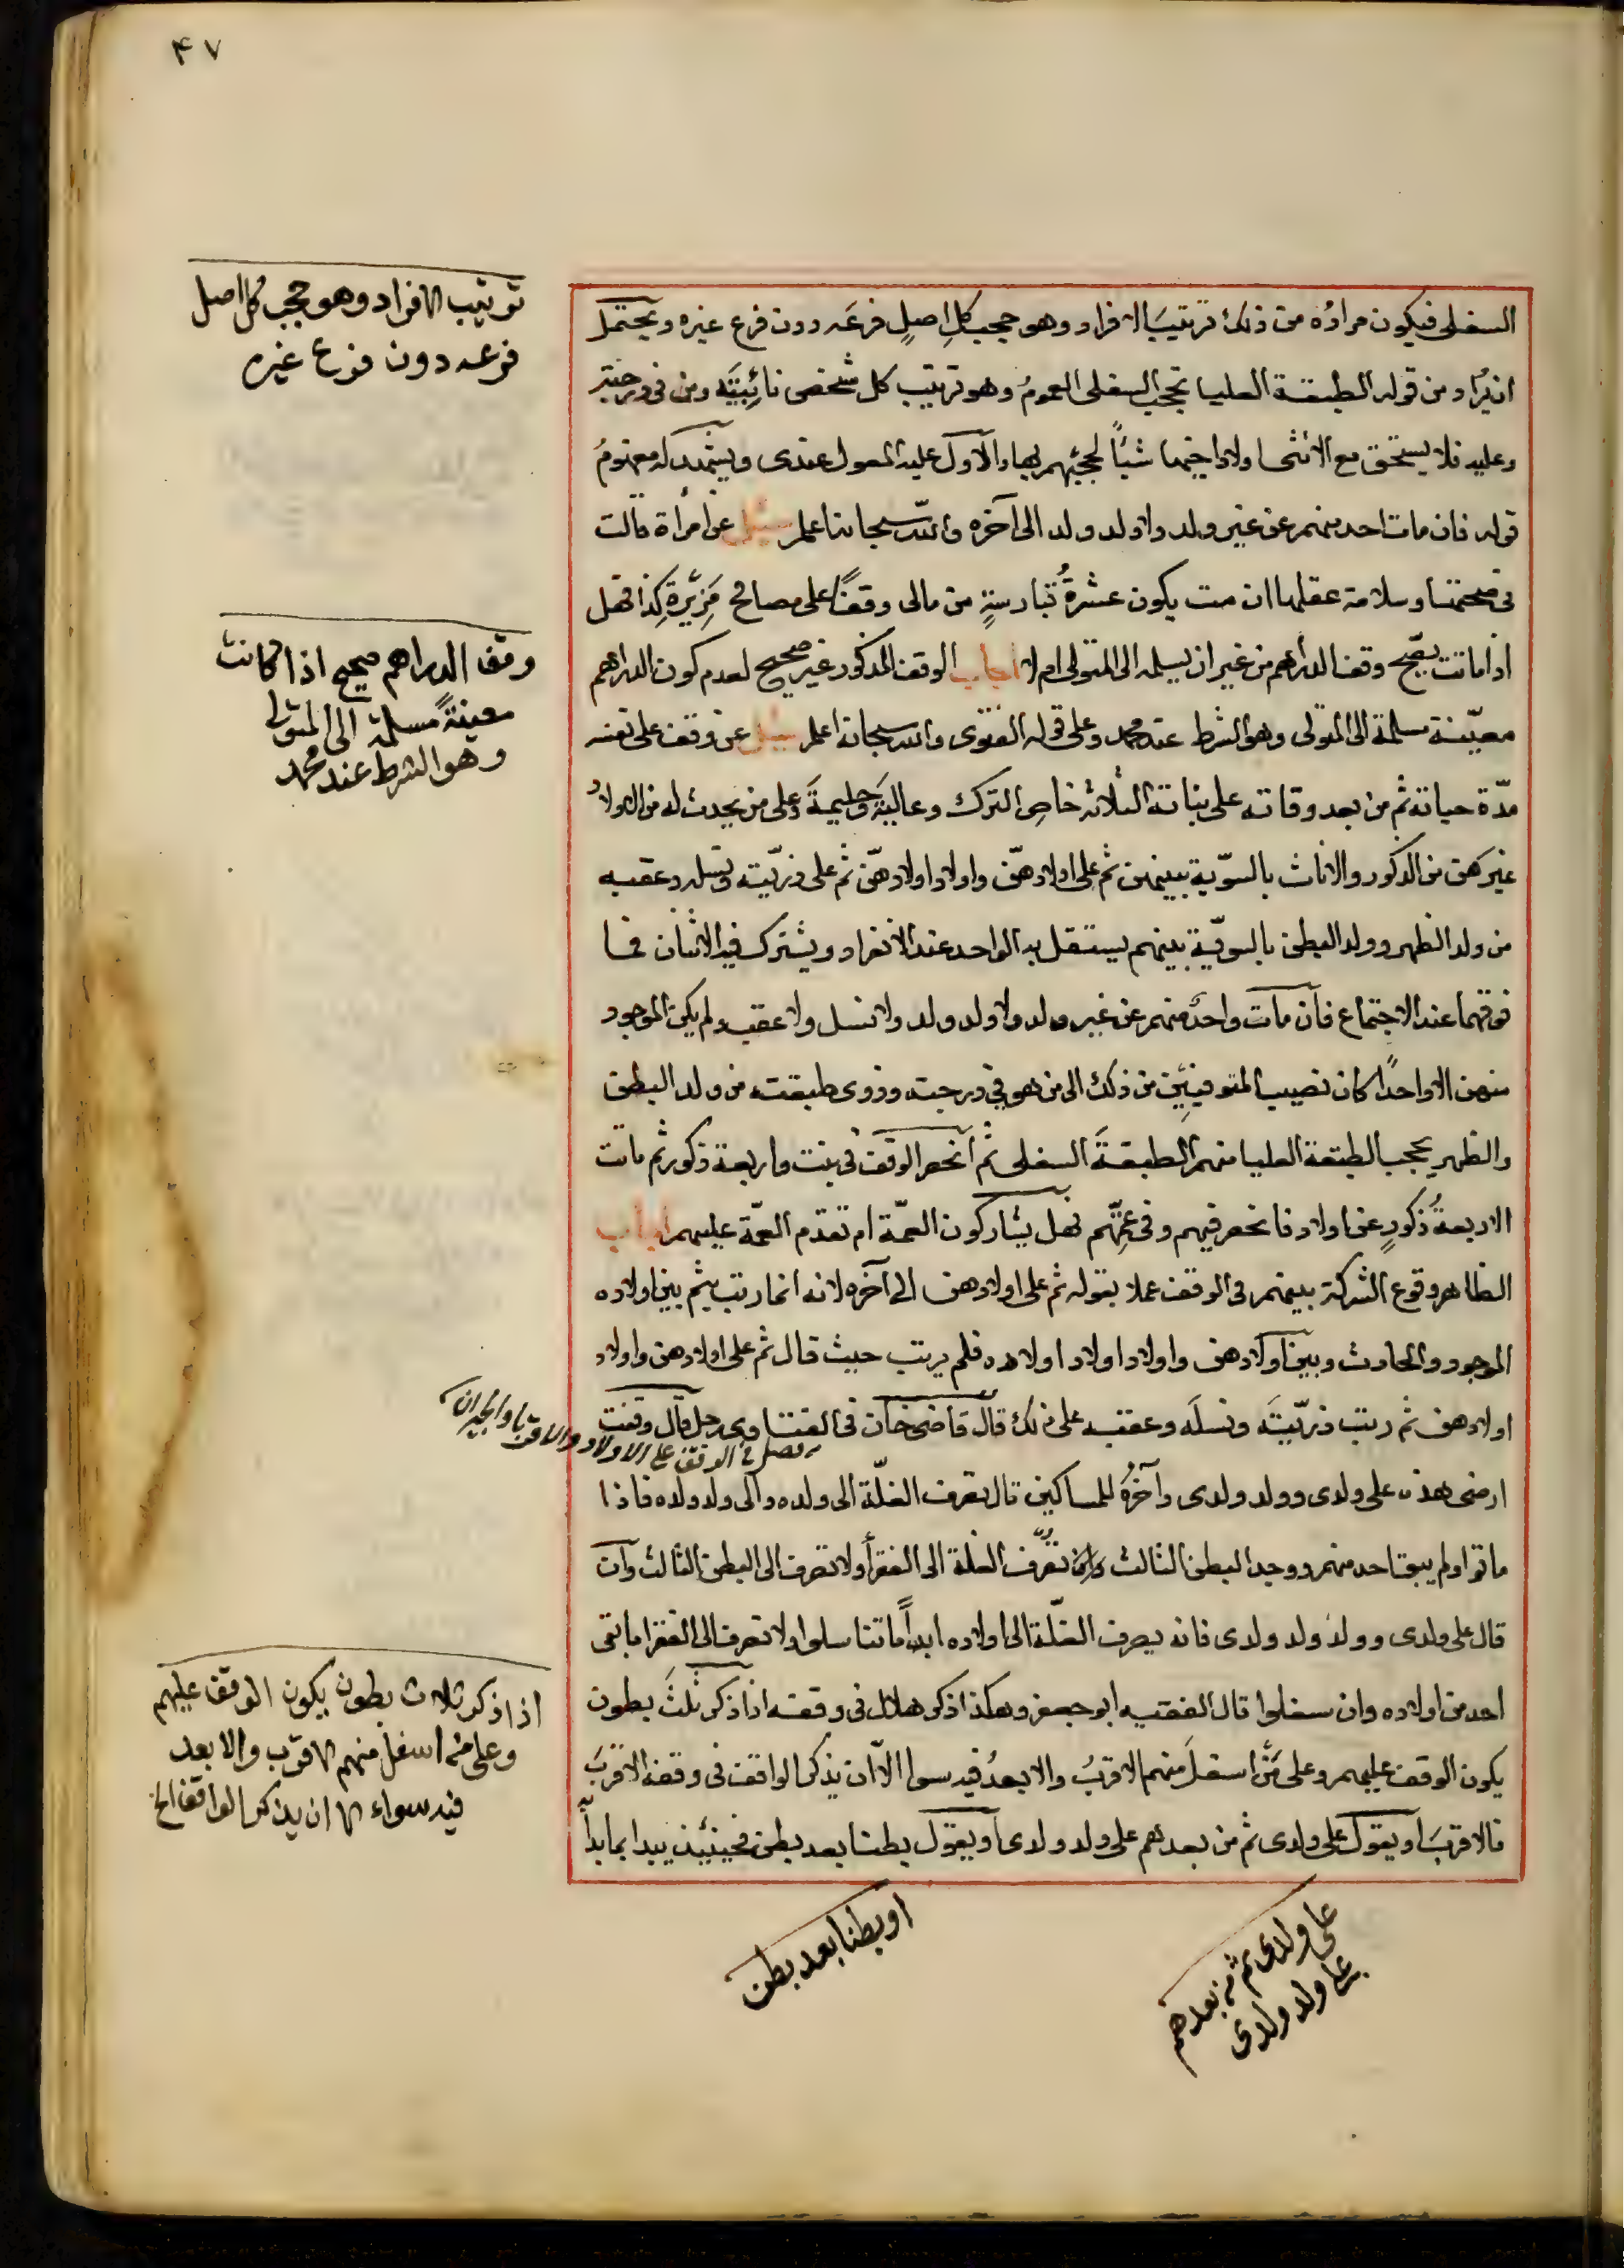 ٤٧
السفلى فيكون مراده من ذلك ترتيب الافراد وهو حجب كل اصل فرعه دون فرع غيره ويحتمل
ان يراد من قوله الطبقة العليا تحجب السفلى العموم وهو ترتيب كل شخص ومن فى درجته
وعليه فلا يستحق مع الانثى اولاد اختها شيئا لحجبهم بها والاول عليه المعول عندى ويشهد له مفهوم
قوله فان مات احد منهم عن غير ولد ولا ولد ولد الى آخره والله سبحانه اعلم سئل عن امرأة قالت
فى صحتها وسلامة عقلها ان مت يكون عشرة من مالى وقفا على مصالح كذا فهل
اذا ماتت يصح وقف الدراهم من غير ان يسلمه الى المتولى ام لا اجاب الوقف المذكور غير صحيح لعدم كون الدراهم
معينة مسلمة الى المتولى وهو الشرط عند محمد وعلى قوله الفتوى والله سبحانه اعلم سئل عن وقف على نفسه
مدة حياته ثم من بعد وفاته على بناته الثلاثه خاص الترك وعالية وحليمة وعلى من يحدث له من الاولاد
غيرهن من الذكور والاناث بالسوية بينهن ثم على اولادهن واولاد اولادهن ثم على ذريته ونسله وعقبه
من ولد الظهر وولد البطن بالسوية بينهم يستقل به الواحد عند الانفراد ويشترك فيه الاثنان فما
فوقهما عند الاجتماع فان مات واحد منهم عن غير ولد ولا ولد ولد ولا نسل ولا عقب ولم يكن الموجود
منهن الا واحدا كان نصيب من ذلك الى من هو فى درجته وذوى طبقته من ولد البطن
والظهر يحجب الطبقة العليا منهم الطبقة السفلى ثم انحصر الوقف فى بنت واربعة ذكور ثم ماتت
الاربعة ذكور عن اولاد فانحصر فيهم وفى عمتهم فهل يشاركون العمة ام تقدم العمة عليهم اجاب
الظاهر وقوع الشركة بينهم فى الوقف عملا بقوله ثم على اولادهن الى آخره لانه انما رتب بثم بين اولاده
الموجود والحادث وبين اولادهن واولاد اولاد اولاده فلم يرتب حيث قال ثم على اولادهن واولاد
اولادهن ثم رتب ذريته ونسله وعقبه على ذلك قال قاضى خان فى الفتاوى رجل قال وقفت
ارضى هذه على ولدى وولد ولدى وآخره للمساكين قال يصرف الغلة الى ولده والى ولد ولده فاذا
ماتوا ولم يبق احد منهم ووجد البطن الثالث تصرف الغلة الى الفقرأ ولا تصرف الى البطن الثالث وان
قال على ولدى وولد ولد ولدى فانه يصرف الغلة الى اولاده ابدا ما تناسلوا ولا تصرف الى الفقرا ما بقى
احد من اولاده وان سفلوا قال الفقيه ابو جعفر وهكذا ذكر هلال فى وقفه اذا ذكر ثلث بطون
يكون الوقف عليهم وعلى من اسفل منهم الاقرب والابعد فيه سوا الا ان يذكر الواقف فى وقفه الاقرب
فالاقرب او يقول على ولدى ثم من بعدهم على ولد ولدى او يقول بطنا بعد بطن فحينئذ يبدا بما بدأ
ترتيب الافراد وهو حجب كل اصل
فرعه دون فرع غيره
وقف الدراهم صحيح اذا كانت
معينة مسلمة الى المتولى
وهو الشرط عند محمد
فصل فى الوقف على الاولاد والاقربا والجيران
اذا ذكر ثلاث بطون يكون الوقف عليهم
وعلى من اسفل منهم الاقرب والابعد
فيه سواء الا ان يذكر الواقف الخ
على ولدى ثم من بعدهم
على ولد ولدى
او بطنا بعد بطن